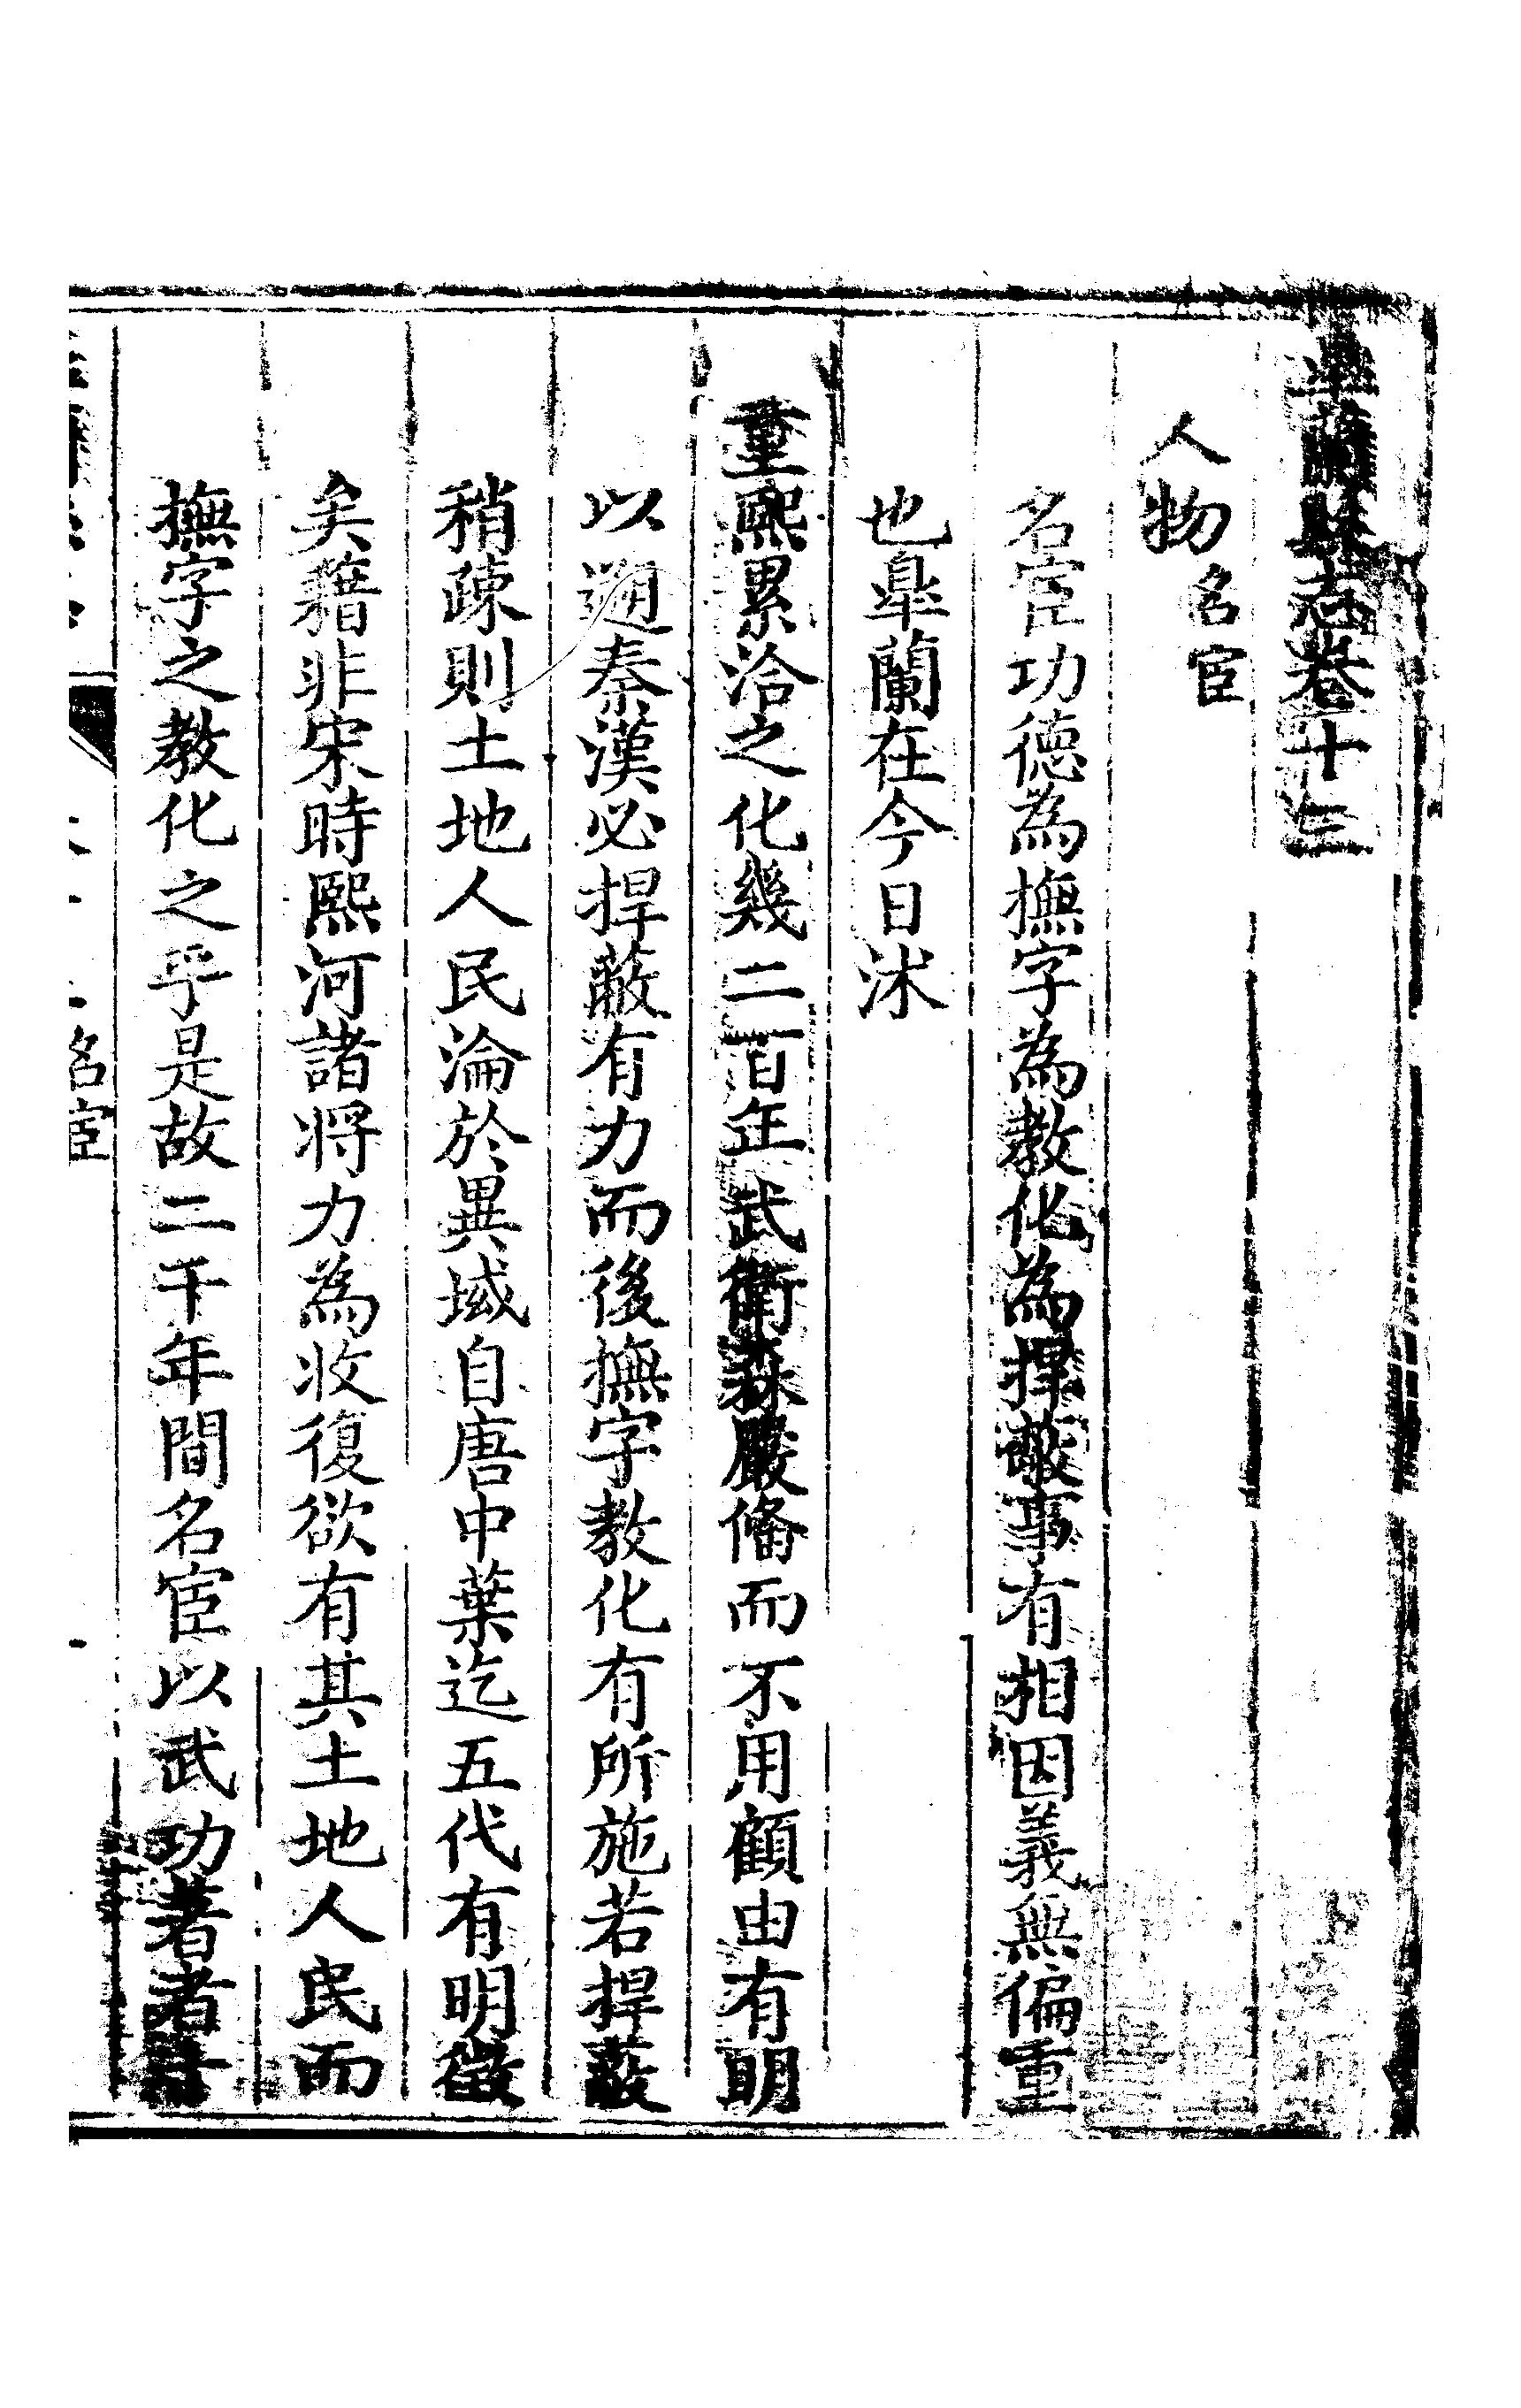 皐蘭縣志卷十三
人物名宦
名宦功德為撫字為教化為捍蔽事有相因義無偏重
也皐蘭在今日沭
重熙累洽之化幾二百年武衛森嚴備而不用顧由有明
以遡秦漢必捍蔽有力而後撫字教化有所施若捍蔽
稍疎則土地人民淪於異域自唐中葉迄五代有明徵
矣藉非宋時熙河諸將力為收復欲有其土地人民而
撫字之教化之乎是故二千年間名宦以武功著者
名宦